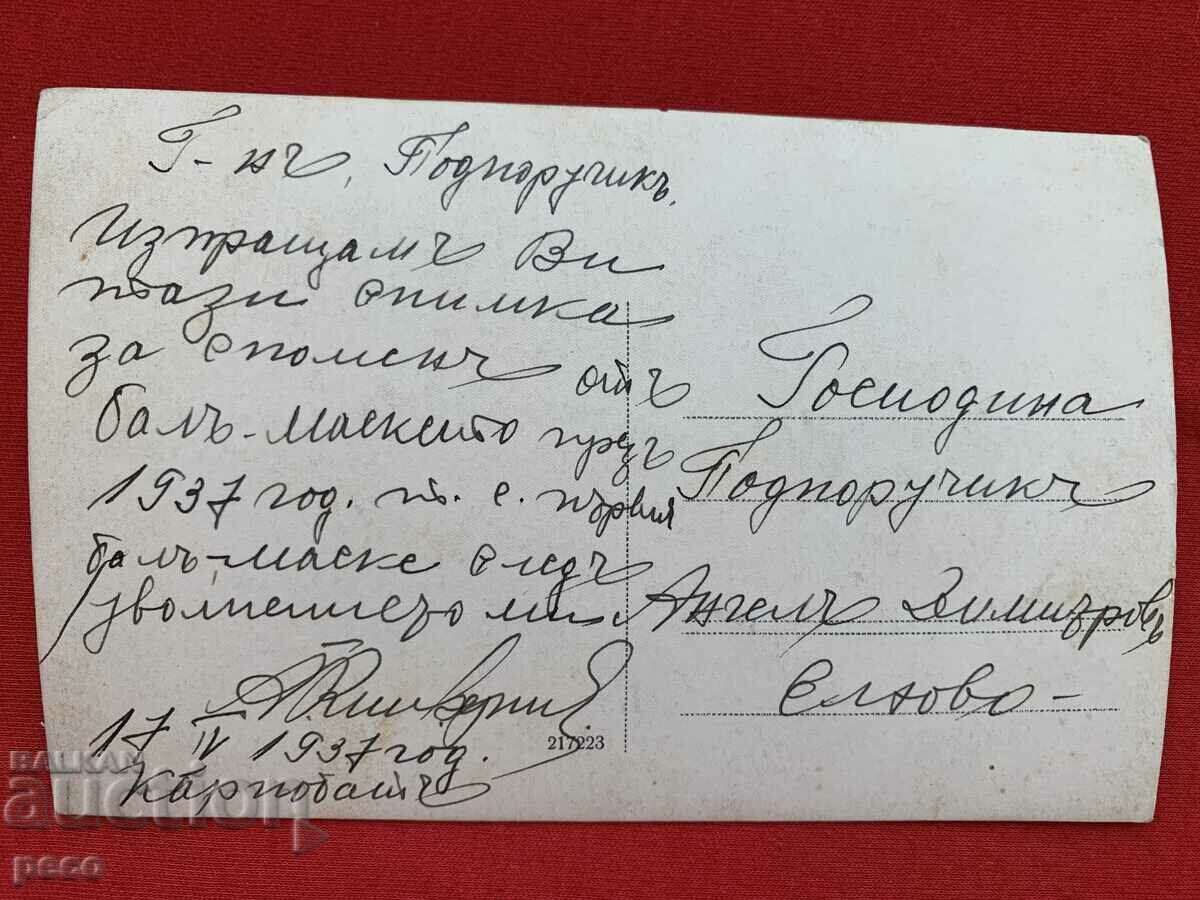 Г-нъ, Подпоручикъ,
Изпращамъ Ви
тази снимка
за споменъ отъ
балъ-маскето презъ
1937 год. т. е. първия
балъ-маске следъ
уволнението ми.
17 IV 1937 год.
Карнобатъ
Господина
Подпоручикъ
Ангелъ Димитровъ
Елхово -
217223
BALKAN
auction
peco